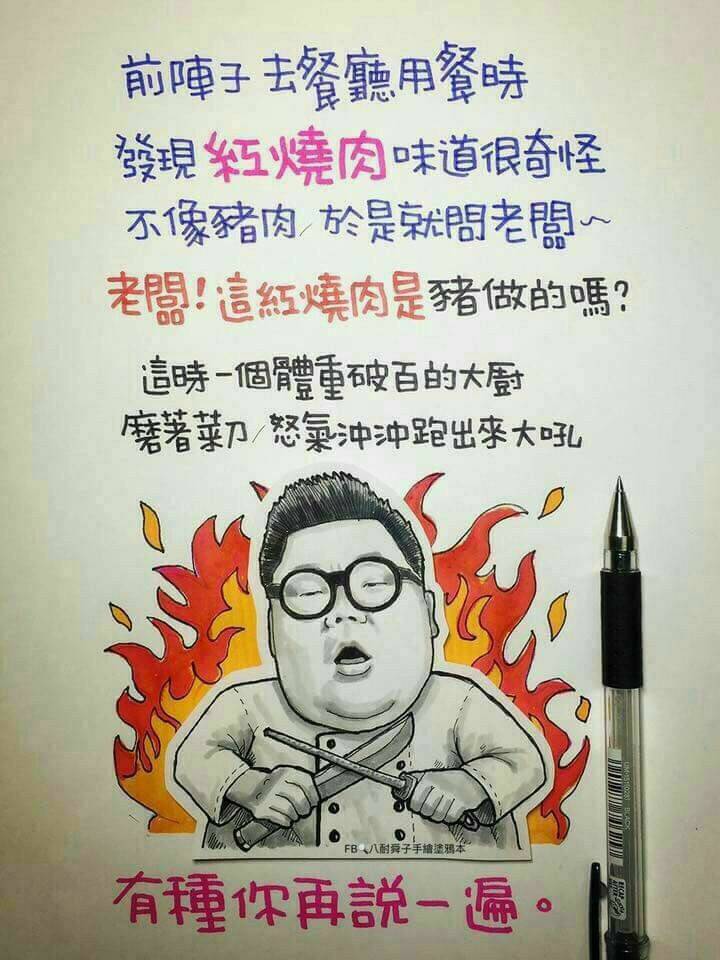 前陣子去餐廳用餐時
發現紅燒肉味道很奇怪
不像豬肉/於是就問老闆～
老闆！這紅燒肉是豬做的嗎？
這時一個體重破百的大廚
磨著菜刀/怒氣沖沖跑出來大吼
FB 八耐舜子手繪塗鴉本
有種你再說一遍。